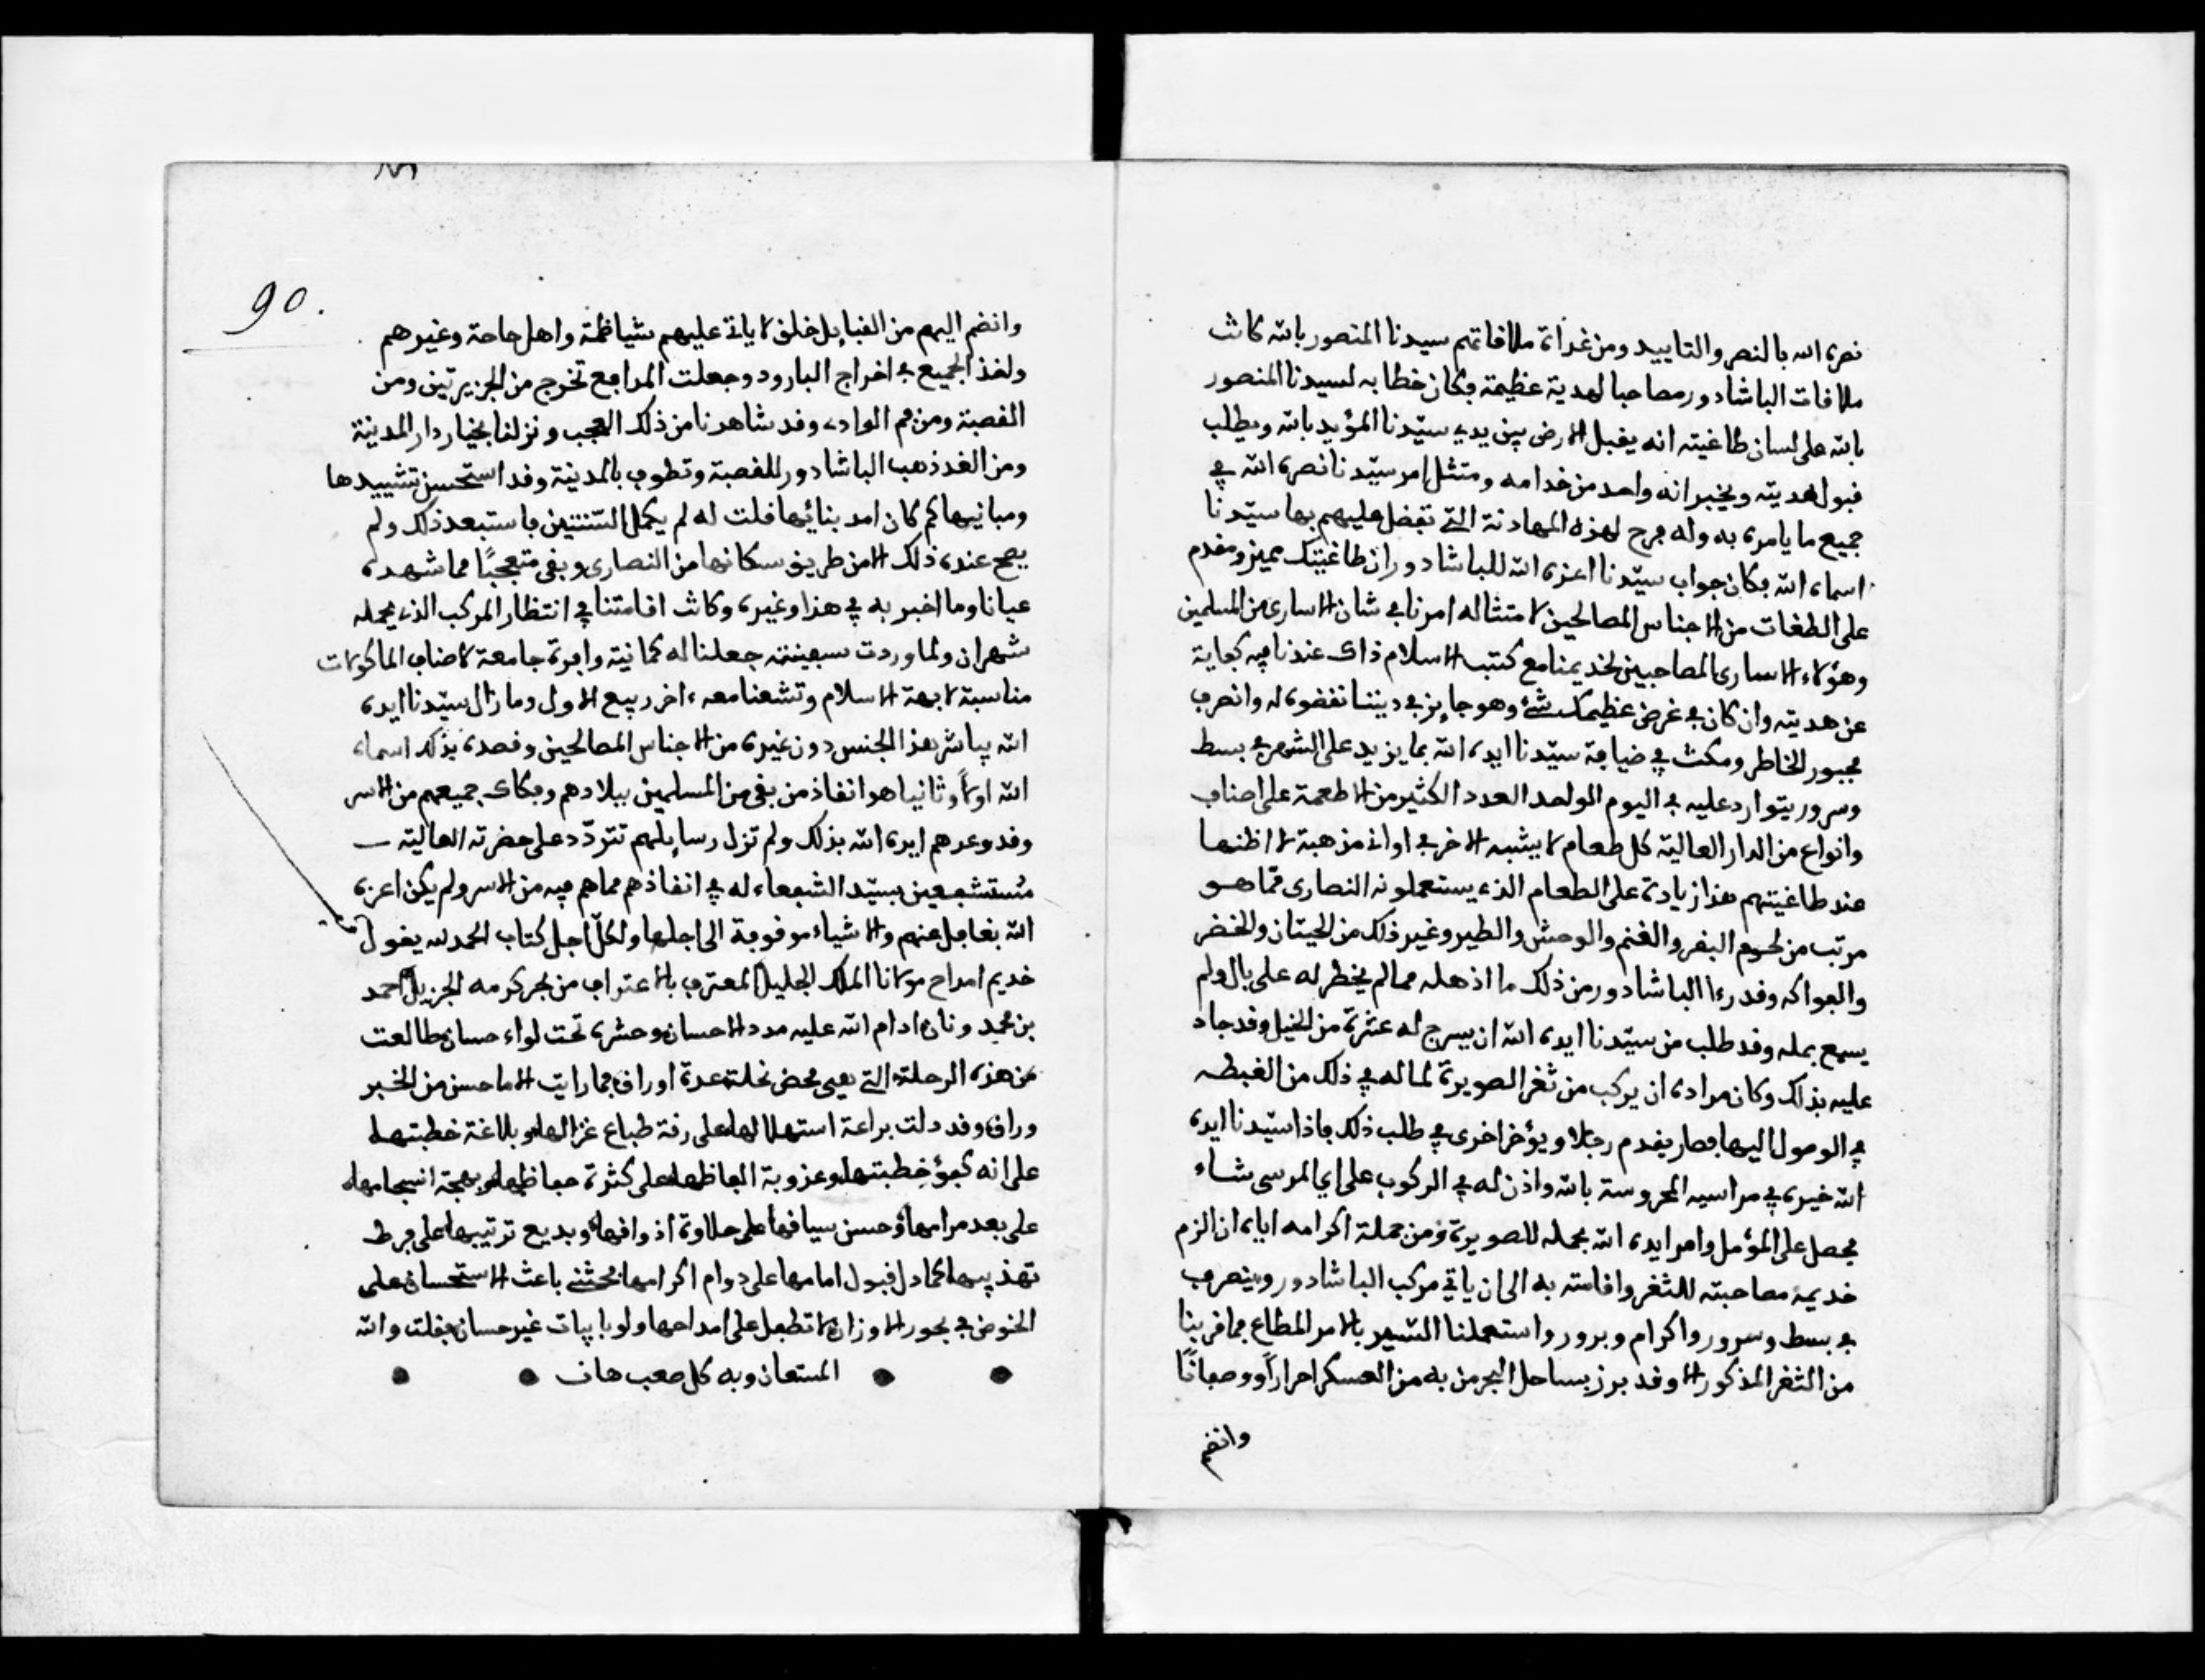 نصره الله بالنصر والتاييد ومن غداة ملاقاتهم سيدنا المنصور بالله كانت
ملاقات الباشادور مصاحبا لهدية عظيمة فكان خطابه لسيدنا المنصور
بالله على لسان طاغيته انه يقبل الارض بين يدي سيّدنا المؤيد بالله ويطلب
قبول هديته ويخبر انه واحد من خدامه ومتثل امر سيّدنا نصره الله في
جميع ما يامره به وله فرح لهذه المهادنة التي تفضل عليهم بها سيّدنا
اسماه الله فكان جواب سيّدنا اعزه الله للباشادور ان طاغيتك مميز ومقدم
على الطغات من الاجناس المصالحين لامتثاله امرنا في شان الاسارى من المسلمين
وهؤلاء الاسارى المصاحبين لخديمنا مع كتب الاسلام ذاك عندنا فيه كفاية
عن هديته وان كان في غرض عظيمك شئ وهو جايز في ديننا نقضوه له وانصرف
مجبور الخاطر ومكث في ضيافة سيّدنا ايده الله بما يزيد على الشهر في بسط
وسرور يتوارد عليه في اليوم الواحد العدد الكثير من الاطعمة على اصناف
وانواع من الدار العالية كل طعام لا يشبه الاخر في اواني مذهبة لا اظنها
عند طاغيتهم هذا زيادة على الطعام الذي يستعملونه النصارى ممّا هو
مرتب من لحوم البقر والغنم والوحش والطير وغير ذلك من الحيتان والخضر
والفواكه وقد رءا الباشادور من ذلك ما اذهله مما لم يخطر له على بال ولم
يسمع بمثله وقد طلب من سيّدنا ايده الله ان يسرح له عشرة من الخيل وقد جاد
عليه بذلك وكان مراده ان يركب من ثغر الصويرة لما له في ذلك من الغبطه
في الوصول اليها فصار يقدم رجلا ويؤخر اخرى في طلب ذلك فاذا سيّدنا ايده
الله خيره في مراسيه المحروسة بالله واذن له في الركوب على اي المرسى شاء
فحصل على المؤمل وامر ايده الله بحمله للصويرة ومن جملة اكرامه اياه ان الزم
خديمه مصاحبته للثغر واقامته به الى ان ياتي مركب الباشادور وينصرف
في بسط وسرور واكرام وبرور واستعملنا السير بالامر المطاع فما قربنا
من الثغر المذكور الا وقد برز بساحل البحر من به من العسكر احراراً ووصفانًا
وانضم
90.
وانضم اليهم من القبايل خلق لا ياتي عليهم شياظمة واهل حاحة وغيرهم
ولغذ الجميع في اخراج البارود وجعلت المدافع تخرج من الجزيرتين ومن
القصبة ومن فم الوادي وقد شاهدنا من ذلك العجب ونزلنا بخيار دار المدينة
ومن الغد ذهب الباشادور للقصبة وتطوف بالمدينة وقد استحسن تشييدها
ومبانيها كم كان امد بنائها قلت له لم يكمل السّنتين فاستبعد ذلك ولم
يصح عنده ذلك الا من طريق سكانها من النصارى وبقى متعجبًا مما شهده
عيانا وما اخبر به في هذا وغيره وكانت اقامتنا في انتظار المركب الذي يحمله
شهران ولما وردت سفينته جعلنا له كمانية وافرة جامعة لاصناف الماكولات
مناسبة لابهة الاسلام وتشعنا معه ءاخر ربيع الاول وما زال سيّدنا ايده
الله يباشر هذا الجنس دون غيره من الاجناس المصالحين وقصده بذلك اسماه
الله اولًا وثانيا هو انفاذ من بقى من المسلمين ببلادهم وفكاك جميعهم من الاسر
وقد وعدهم ايده الله بذلك ولم تزل رسايلهم تتردّد على حضرته العالية
مُستشفعين بسيّد الشفعاء له في انفاذهم مما هم فيه من الاسر ولم يكن اعزه
الله بغافل عنهم والاشياء موقوفة الى اجلها ولكلّ اجل كتاب الحمد لله يقول
خديم امداح مولانا الملك الجليل المعترف بالاغتراف من بحر كرمه الجزيل احمد
بن محمد ونان ادام الله عليه مدد الاحسان وحشره تحت لواء حسان طالعت
من هذه الرحلة التي هي محض نحلة عدة اوراق فما رايت الا ما حسن من الخبر
وراق وقد دلت براعة استهلالها على رقة طباع غزالها وبلاغة خطبتها
على انه كفؤ خِطبتها وعذوبة الفاظها على كثرة حفاظها وبهجة انسجامها
على بعد مرامها وحسن سياقها على حلاوة اذواقها وبديع ترتيبها على فرط
تهذيبها كما دل قبول امامها على دوام اكرامها فحثني باعث الاستحسان على
الخوض في بحور الاوزان لا تطفل على امداحها ولو بابيات غير حسان فقلت والله
المستعان وبه كل صعب هان